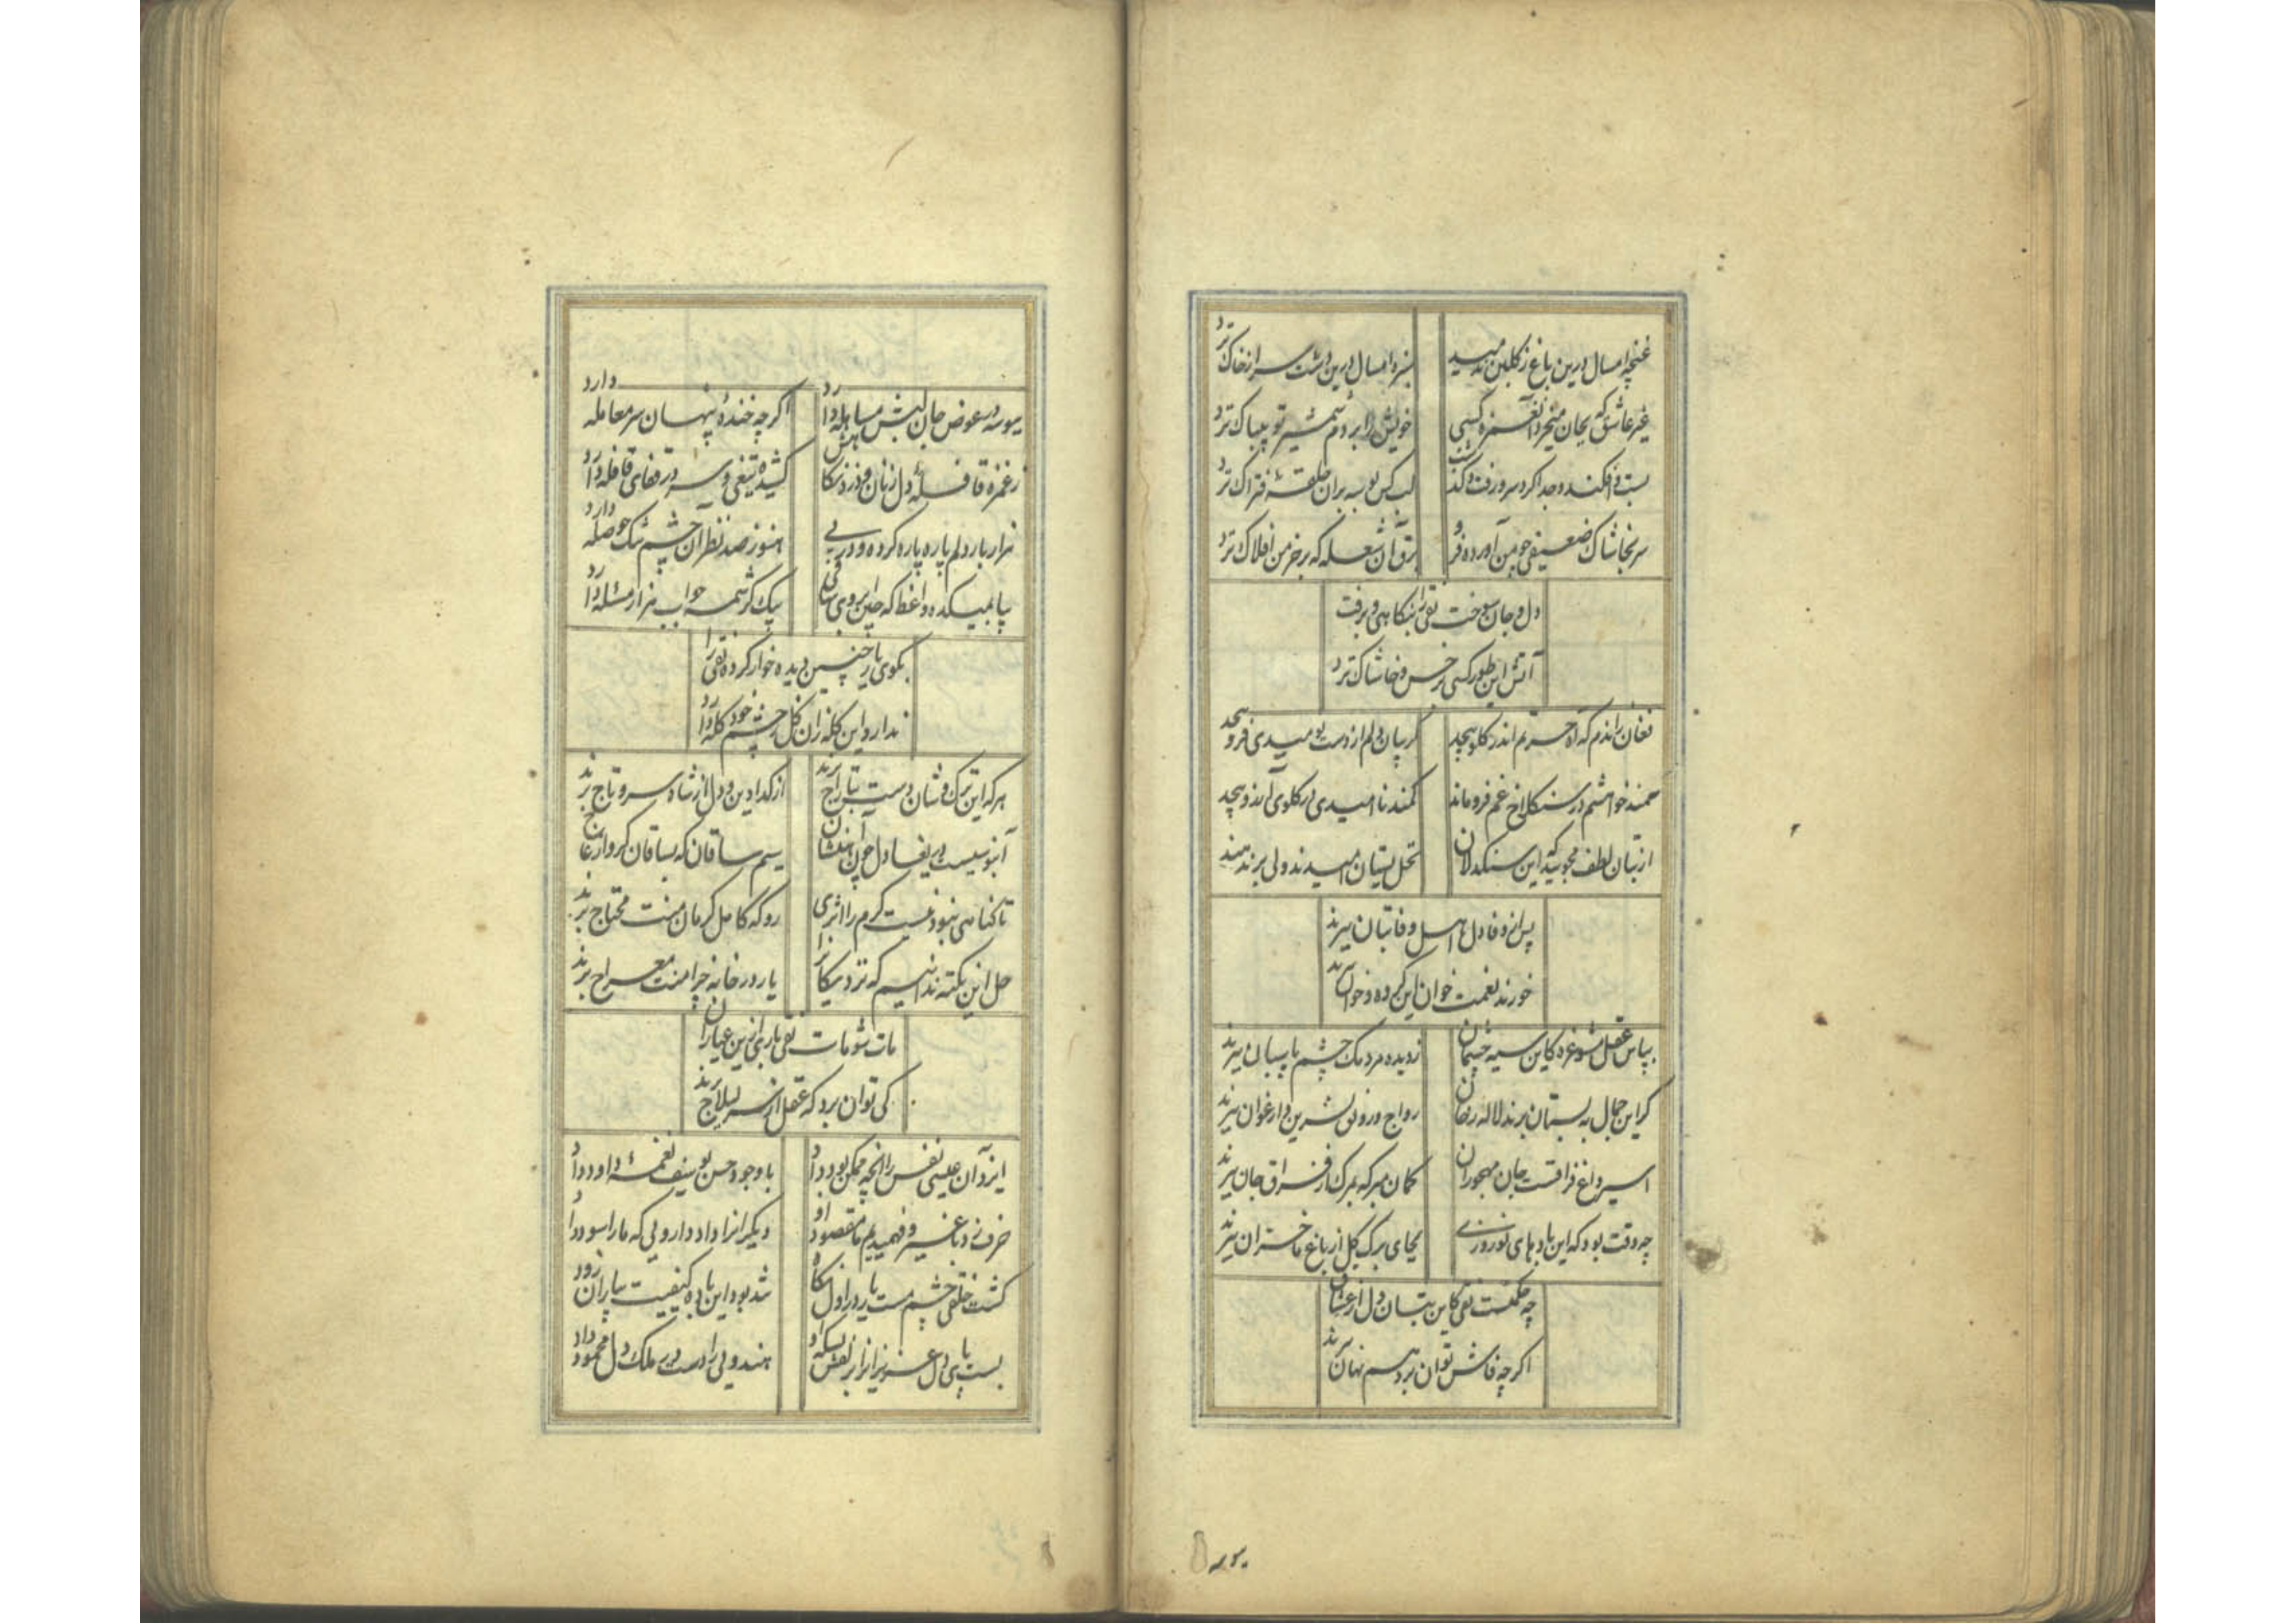 غنچه امسال درین باغ ز گلبن ندمید
سبزه امسال درین دشت سر از خاک نزد
غیر عاشق که بجان میخرد آن غمزه کسی
خویش را بر دم شمشیر تو بیباک نزد
افکند و جدا کرد سر و رفت و
لب کس بوسه بران حلقهٔ فتراک نزد
سر بخاشاک ضعیفی چو من آورده فرو
برق آن شعله که بر خرمن افلاک نزد
دل و جان سوخت نقی را بنگاهی و برفت
آتش این طور کسی بر خس و خاشاک نزد
فغان راندم که آه حسرتم اندر گلو پیچد
گریبان دلم از دست نومیدی فرو پیچد
سمند خواهشم در سنگلاخ غم فرو ماند
کمند ناامیدی در گلوی آرزو پیچد
از بتان لطف مجویید که این سنگدلان
نخل بستان امیدند ولی بر ندهند
پس از وفا دل اهل وفا بتان ببرند
خورند نعمت خوان این گروه و خوان ببرند
بپاس عقل مشو غره کاین سیه چشمان
ز دیده مردمک چشم پاسبان ببرند
گر این جمال به بستان برند لاله رخان
رواج و رونق نسرین و ارغوان ببرند
اسیر داغ فراقست جان مهجوران
گمان مبر که بمرگ از فراق جان ببرند
چه وقت بود که این بادهای نوروزی
بجای برگ گل از باغ ما خزان ببرند
چه حکمتست نقی کاین بتان دل از عشاق
اگر چه فاش توان برد هم نهان ببرند
بوسه
ببوسه در عوض جان لبش مساهله دارد
اگر چه خندهٔ پنهانش سر معامله دارد
ز غمزه قافلهٔ دل زنان و دزد نگاهش
کشیده تیغی و سر در قفای قافله دارد
هزار بار دلم پاره پاره کرده و در پی
هنوز صد نظر آن چشم تنگ حوصله دارد
بیا بمیکده واعظ که چین ابروی ساقی
بیک کرشمه جواب هزار مسئله دارد
بگوی یار چنین دیده خوار کرده نقی را
ندارد این گله زان گل ز چشم خود گله دارد
هر که این ترک وشان دست بتاراج برند
از گدا دین و دل از شاه سر و تاج برند
آبنوسیست در یغما دل چون
سیم ساقان که بساقان گرو از عاج برند
تا گناهی نبود نیست کرم را اثری
رو که کامل کرمان منت محتاج برند
حل این نکته ندانیم که نزدیکانرا
یار در خانه چرا منت معراج برند
مات شو مات نقی بازی ازین عیاران
کی توان برد که عقل از سر لیلاج برند
ایزد آن عیسی نفس را آنچه ممکن بود داد
با وجود حسن یوسف نغمهٔ داود داد
حرف زد با غیر و فهمیدیم ما مقصود او
دیگرانرا داد دارویی که ما را سود داد
کشت خلقی چشم مست یار در اول نگاه
شد بود این باده کیفیت بیاران زود داد
بست پای دل عزیزانرا ز زلفش بسکه او
هندویی را دست در ملک دل محمود داد